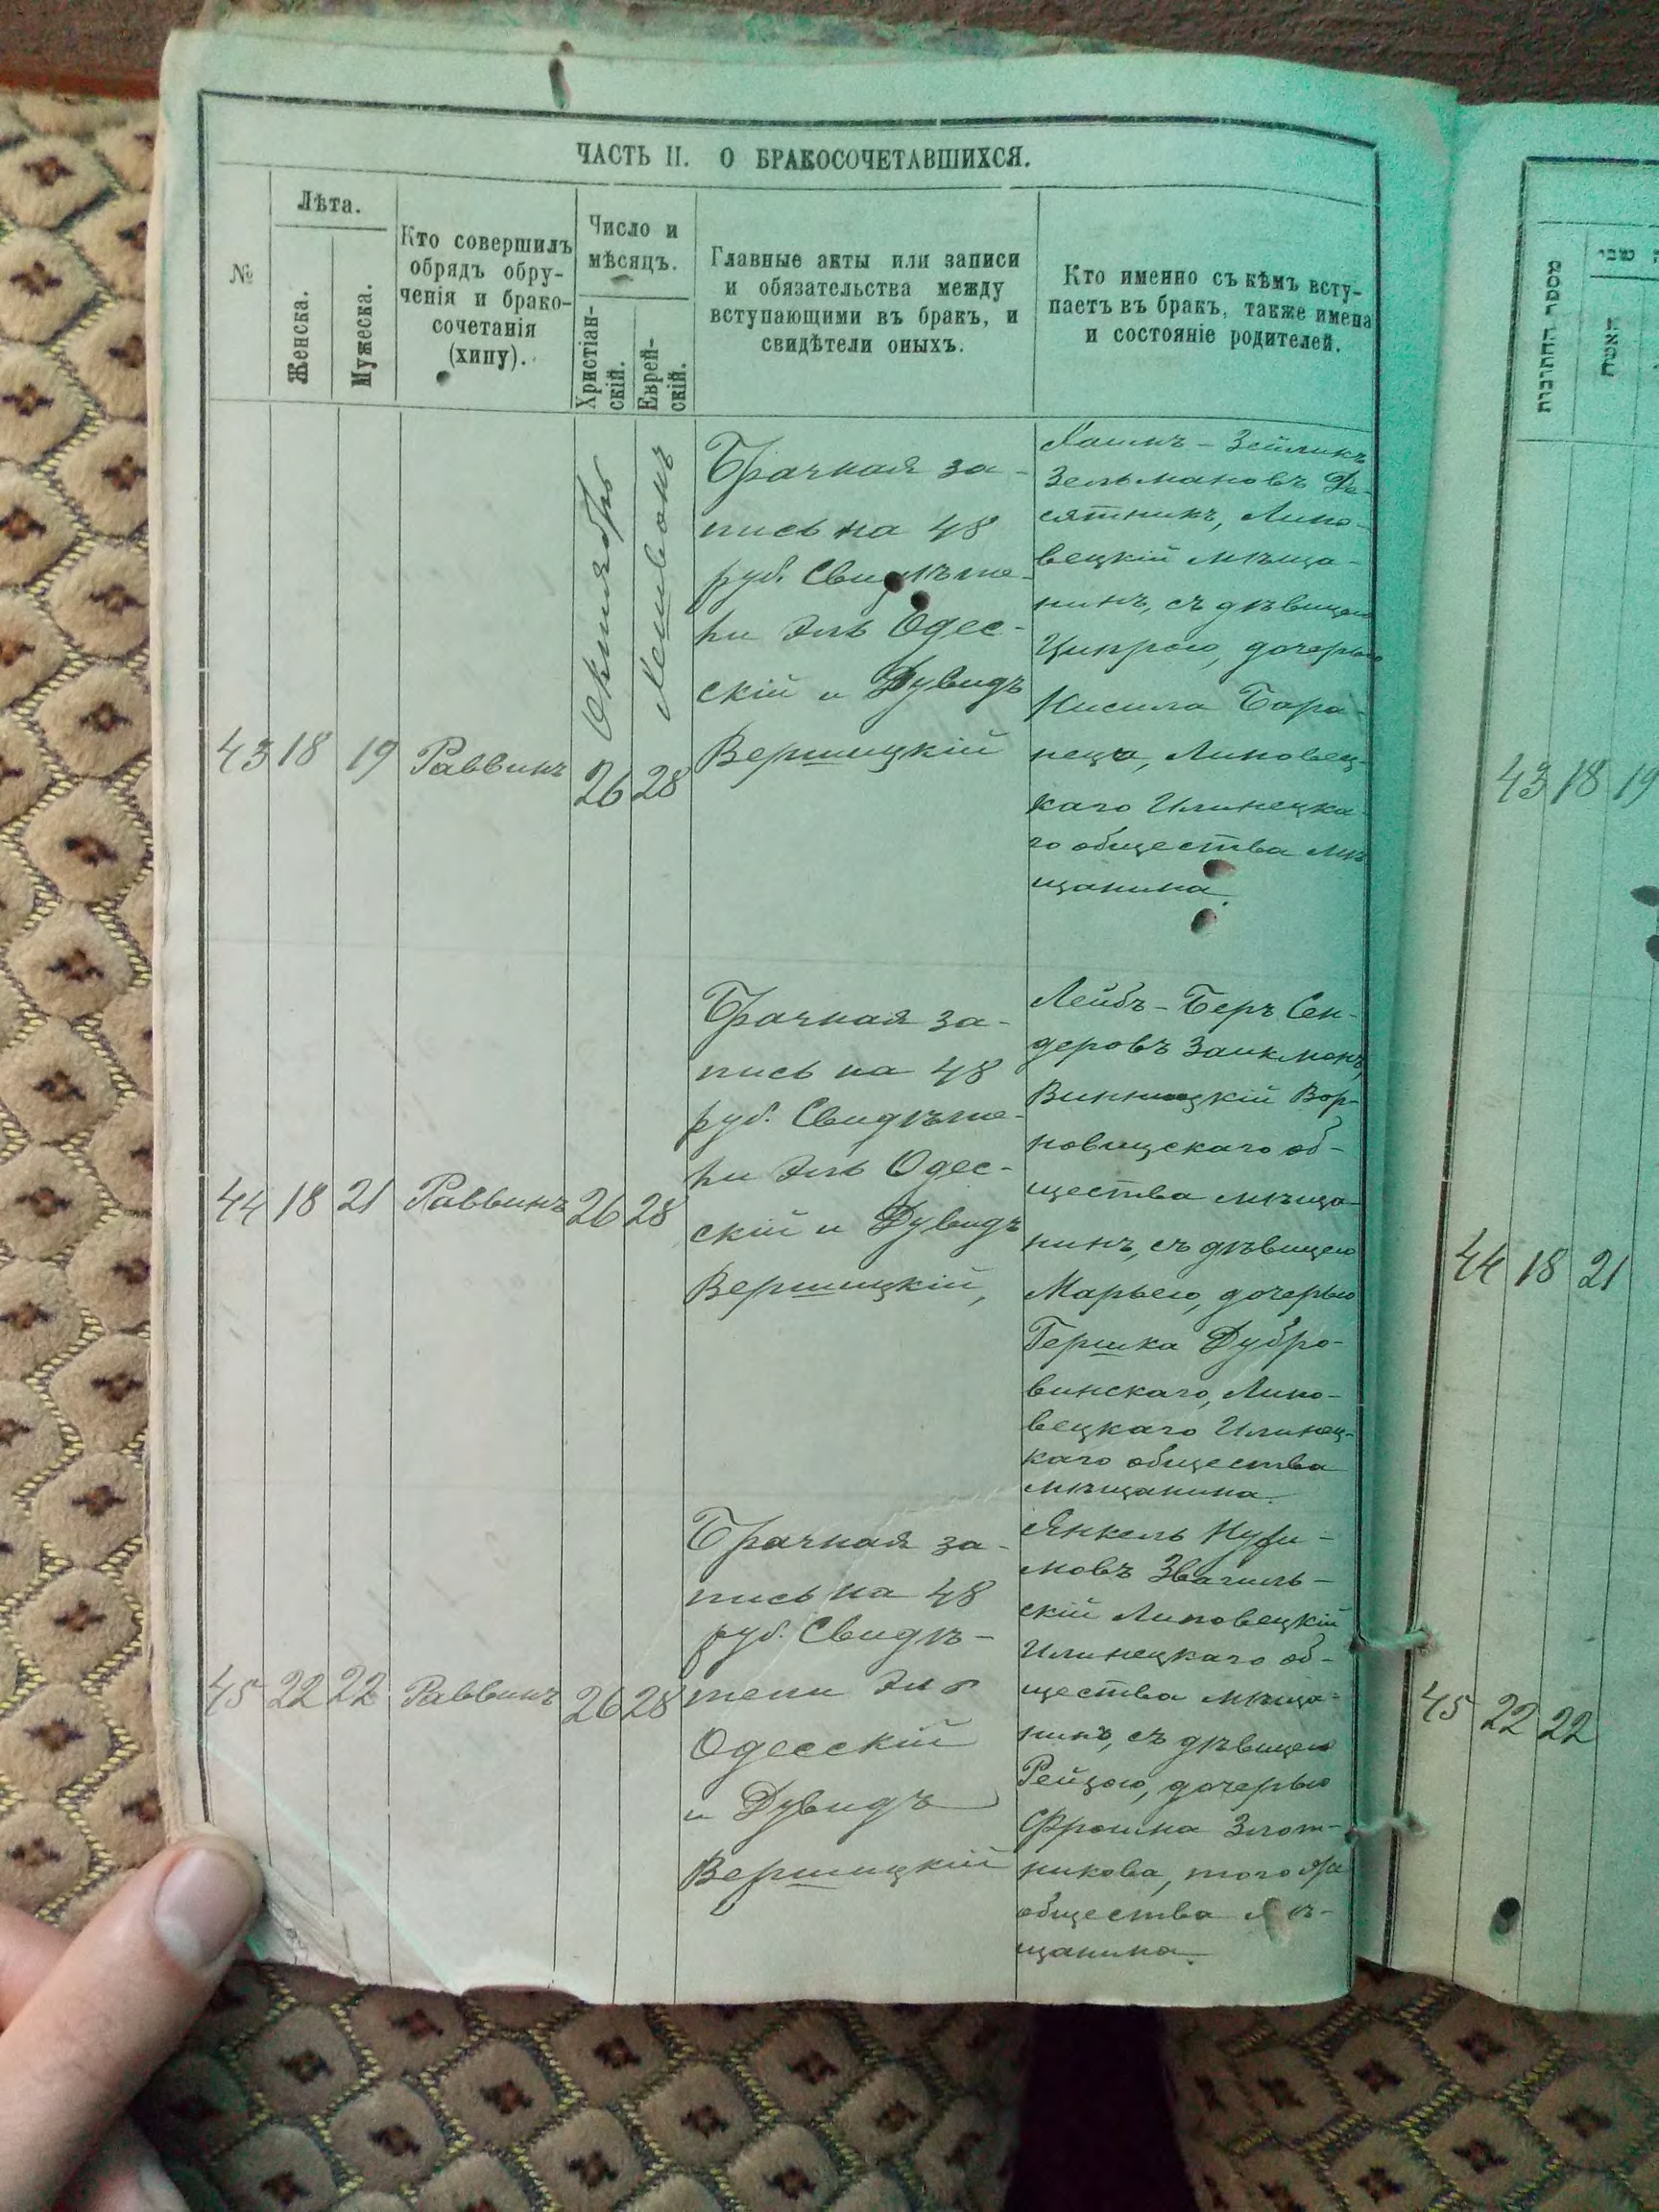 ЧАСТЬ II. О БРАКОСОЧЕТАВШИХСЯ.
№
Лѣта.
Женска.
Мужеска.
Кто совершилъ
обрядъ обру-
ченія и брако-
сочетанія
(хипу).
Число и
мѣсяцъ.
Христіан-
скій.
Еврей-
скій.
Главные акты или записи
и обязательства между
вступающими въ бракъ, и
свидѣтели оныхъ.
Кто именно съ кѣмъ всту-
паетъ въ бракъ, также имена
и состояніе родителей.
43
18
19
Раввинъ
Октября
26
Хешвонъ
28
Брачная за-
пись на 48
руб. Свидѣте-
ли Эль Одес-
скій и Дувидъ
Вершицкій
Хаимъ-Зейликъ
Зельмановъ Де-
сятникъ, Липо-
вецкій мѣща-
нинъ, съ дѣвицею
Ципрою, дочерью
Нисила Бара-
неца, Липовец-
каго Илинецка-
го общества мѣ-
щанина.
44
18
21
Раввинъ
26
28
Брачная за-
пись на 48
руб. Свидѣте-
ли Эль Одес-
скій и Дувидъ
Вершицкій,
Лейбъ-Беръ Сен-
деровъ Заикманъ,
Винницкій Вор-
новицскаго об-
щества мѣща-
нинъ, съ дѣвицею
Марьею, дочерью
Гершка Дубро-
винскаго, Липо-
вецкаго Илинец-
каго общества
мѣщанина.
45
22
22
Раввинъ
26
28
Брачная за-
пись на 48
руб. Свидѣ-
тели Эль
Одесскій
и Дувидъ
Вершицкій
Янкель Нухи-
мовъ Звагиль-
скій Липовецкій
Илинецкаго об-
щества мѣща-
нинъ, съ дѣвицею
Рейзою, дочерью
Фроима Злот-
никова, того же
общества мѣ-
щанина.
מספר החתונות
שני
האשה
43
18
19
44
18
21
45
22
22